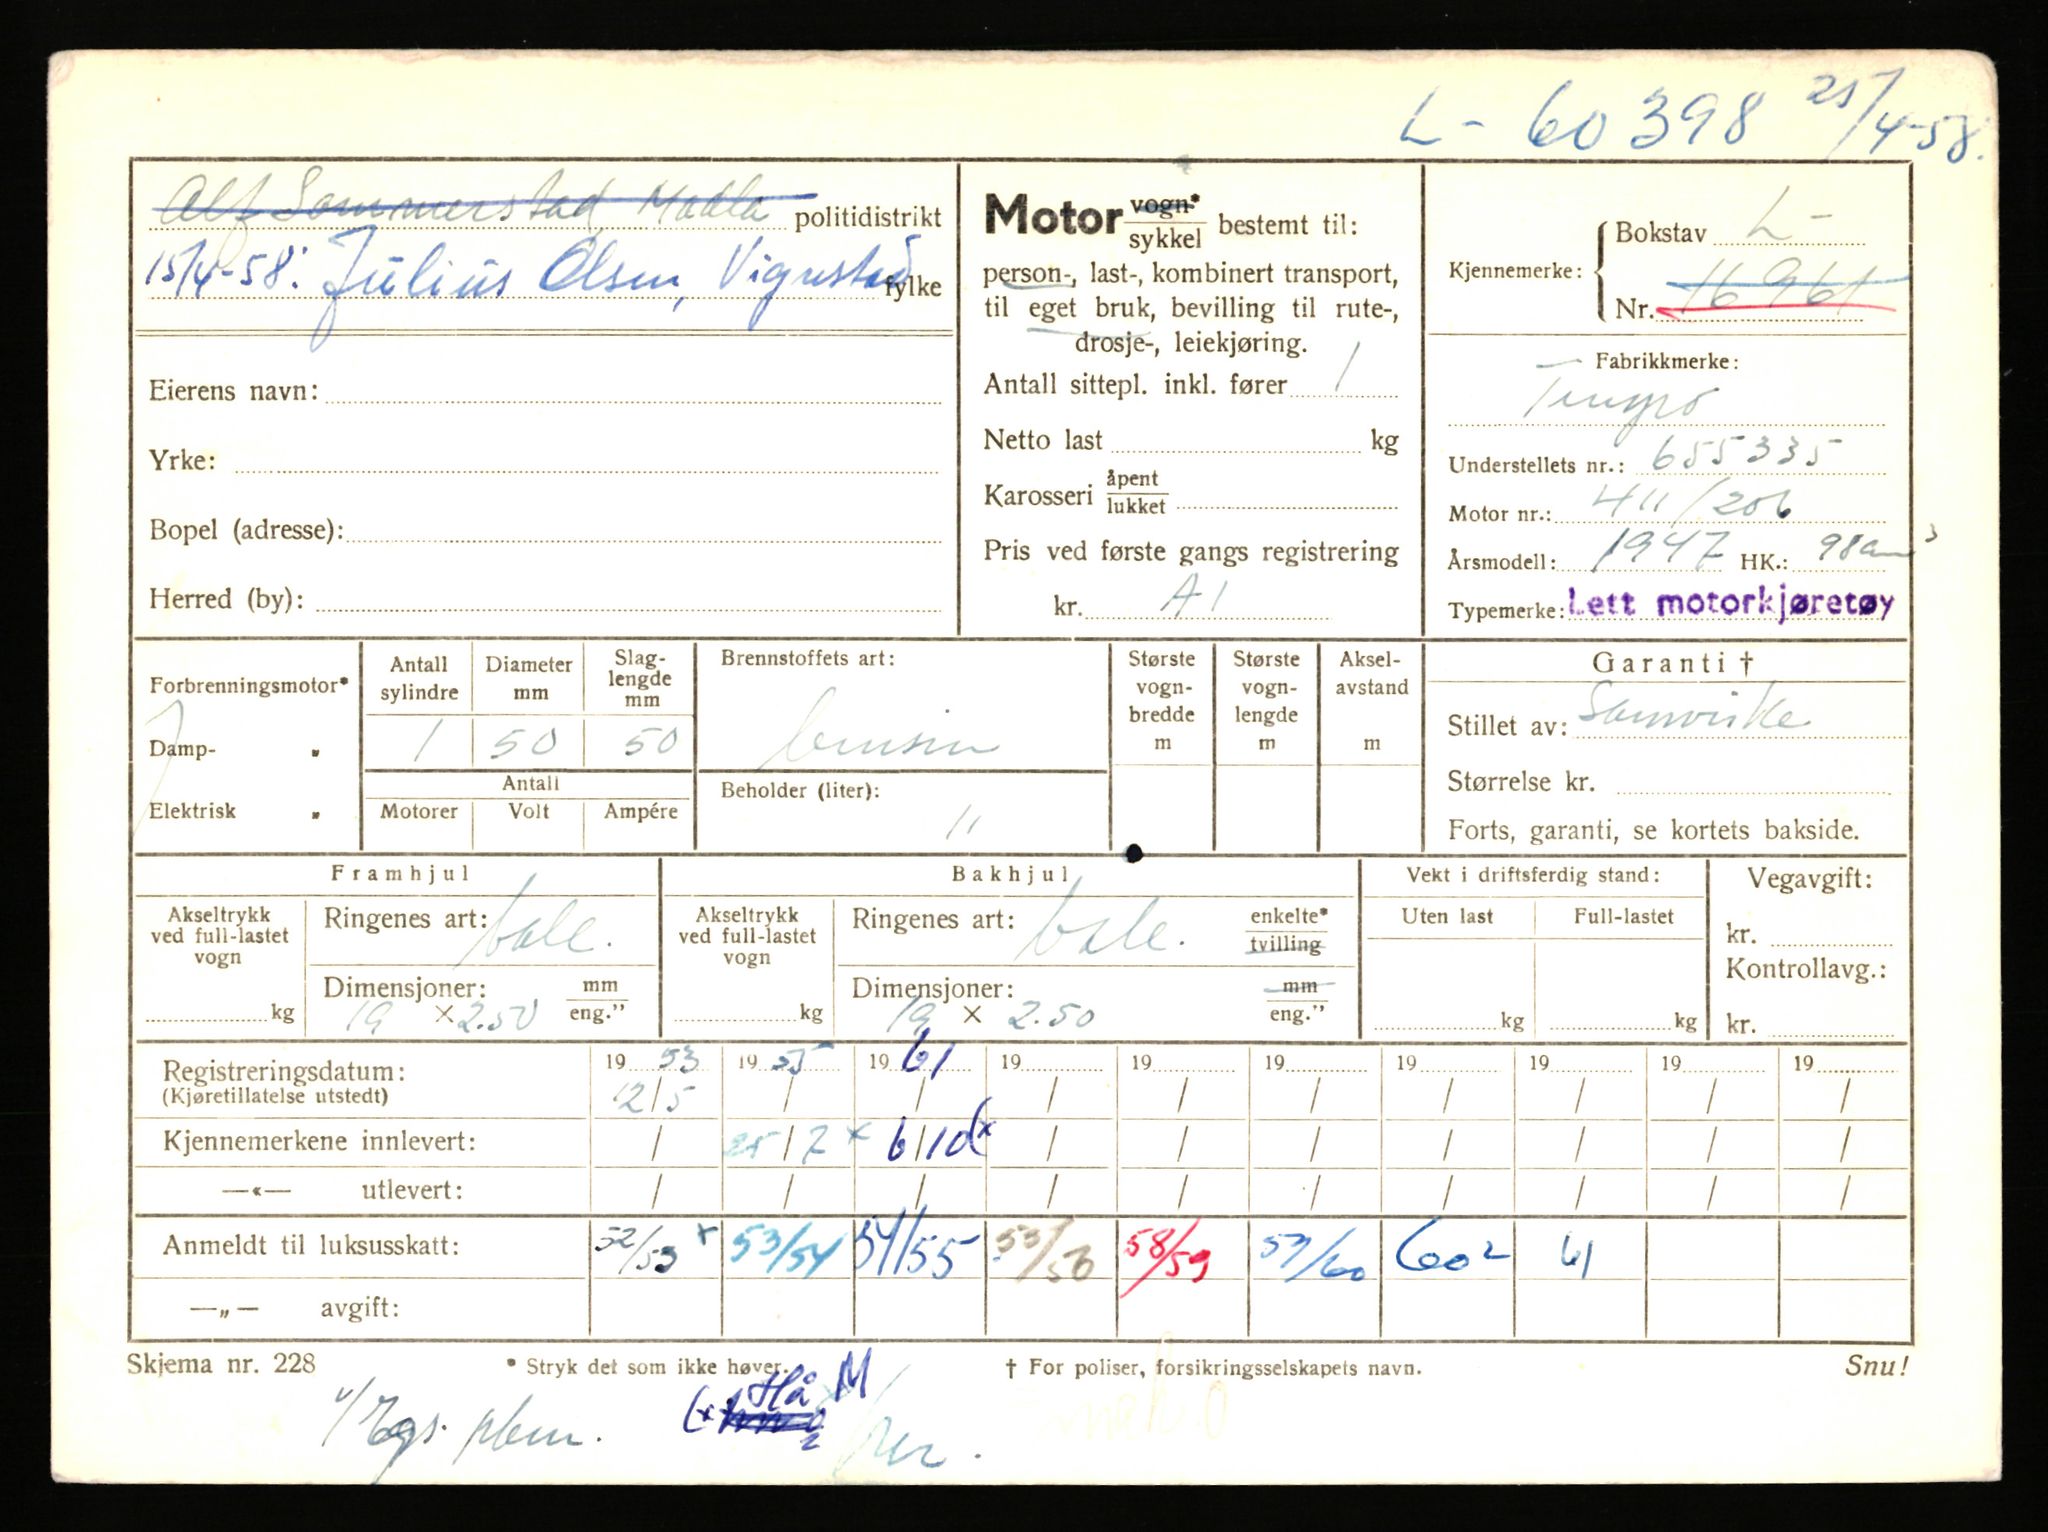 L- 60398 25/4-58.
Alf Sommerstad, Madla politidistrikt
15/4-58: Julius Olsen, Vigrestad fylke
Eierens navn:
Yrke:
Bopel (adresse):
Herred (by):
Motor vogn*
sykkel bestemt til:
person-, last-, kombinert transport,
til eget bruk, bevilling til rute-,
drosje-, leiekjøring.
Antall sittepl. inkl. fører 1
Netto last kg
Karosseri åpent
lukket
Pris ved første gangs registrering
kr. A1
Kjennemerke: Bokstav L-
Nr. 16961
Fabrikkmerke:
Tempo
Understellets nr.: 655335
Motor nr.: 411/206
Årsmodell: 1947 HK.: 98cm3
Typemerke: Lett motorkjøretøy
Forbrenningsmotor*
Damp- "
Elektrisk "
Antall sylindre 1
Diameter mm 50
Slag-lengde mm 50
Antall
Motorer Volt Ampére
Brennstoffets art:
bensin
Beholder (liter):
11
Største vogn-bredde m
Største vogn-lengde m
Aksel-avstand m
Garanti †
Stillet av: Samvirke
Størrelse kr.
Forts, garanti, se kortets bakside.
Framhjul
Akseltrykk ved full-lastet vogn
kg
Ringenes art:
Dimensjoner: mm
19 × 2.50 eng."
Bakhjul
Akseltrykk ved full-lastet vogn
kg
Ringenes art: enkelte*
tvilling
Dimensjoner: mm
19 × 2.50 eng."
Vekt i driftsferdig stand:
Uten last Full-lastet
kg kg
Vegavgift:
kr.
Kontrollavg.:
kr.
Registreringsdatum: 1953 1955 1961 19 19 19 19 19 19 19
(Kjøretillatelse utstedt) 12/5 / / / / / / / / /
Kjennemerkene innlevert: / 25/7 x 6/10 (x / / / / / / /
—«— utlevert: / / / / / / / / / /
Anmeldt til luksusskatt: 52/53 x 53/54 54/55 58/59 60² 61
—„— avgift:
Skjema nr. 228 * Stryk det som ikke høver. † For poliser, forsikringsselskapets navn. Snu!
(x Hå M